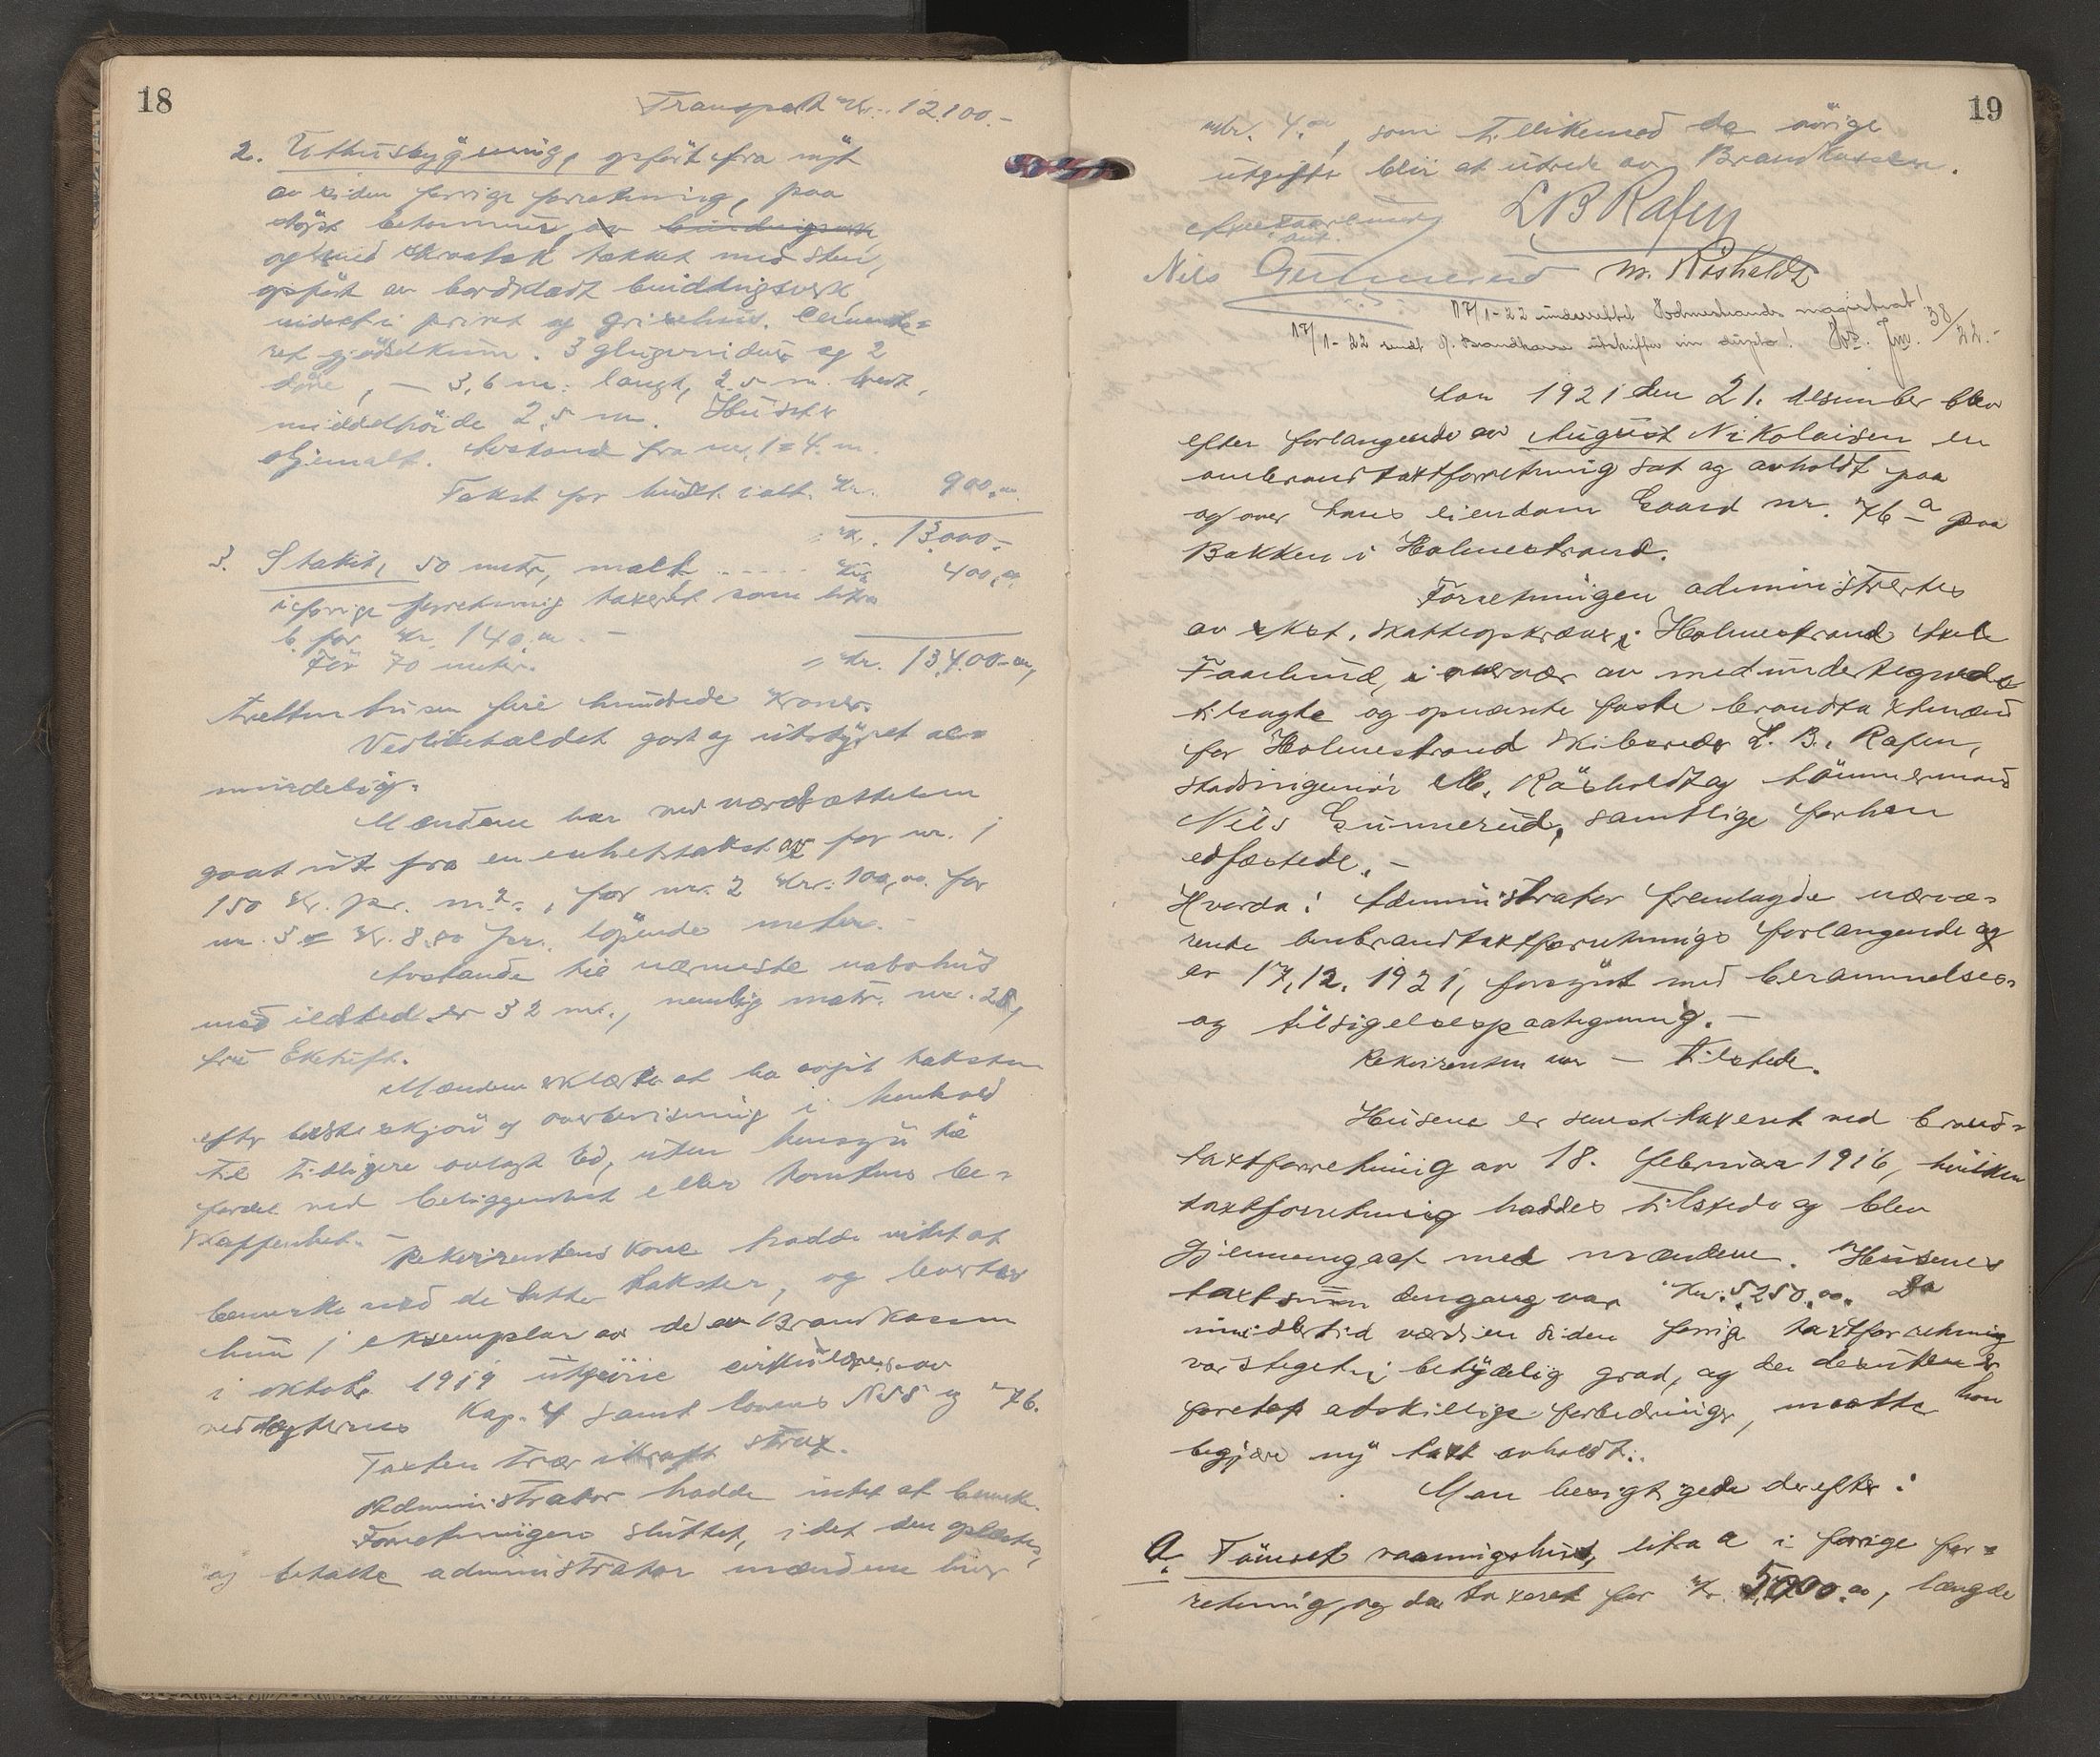 18
Transport Kr. 12.100.-
2. Uthusbygning, opført fra nyt
av siden forrige forretning, paa
støpt betonmur, av bindingsverk
og med skraatak tækket med sten,
opført av bordklædt bindingsverk
inidelt i privet og grisehus. Cemente=
ret gjødselkum. 3 glugvinduer og 2
døre, — 3,6 m. langt, 2,5 m. bredt,
middelhøide 2,5 m. Huset er
oljemalt. Avstand fra nr. 1 = 4. m.
Takst for huset i alt. Kr. 900.00
Kr. 13.000.-
3. Stakit, 50 metr, malt ..... Kr. 400.00
i forrige forretning taxeret som litra
b for Kr. 140.00. —
Før 70 meter.
Kr. 13.400.00,
tretten tusen fire hundrede kroner.
Vedlikeholdet godt og utstyret al=
mindelig.
Mændene har ved værdsættelsen
gaat ut fra en enhetstakst av for nr. 1
150 Kr. pr. m². , for nr. 2 Kr. 100,00 for
nr. 3 Kr. 8.00 pr. løpende meter. -
Avstande til nærmeste nabohus
med ildsted er 32 m., nemlig matr. nr. 28,
fru Ektvft.
Mændene erklærte at ha avgit taksten
efter bedste skjøn og overbevisning i henhold
til tidligere avlagt Ed, uten hensyn til
fordel ved beliggenhet eller tomtens be=
skaffenhet. -
Rekvirentens kone hadde intet at
bemerke ved de satte takster, og leverter
hun 1 eksemplar av de av Brandkassen
i oktobr 1919 utgivne cirkulærer av
vedtægternes Kap. 4 samt lovens N55 og 76.
Taxten trær ikraft strax.
Administrator hadde intet at bemerke.
Forretningen sluttet, idet den oplæstes,
og betalte administrator mændene hver
19
Kr. 4.00, som tillikemed de øvrige
utgifter blir at utrede av Brandkassen.
Axel Faarlund
aut.
L B Rafen
Nils Gunnerud m. Røsholdt
17/1-22 underrettet Holmestrands magistrat!
17/1-22 sendt N. Brandkasse utskrifter in duplo! Jnr. 38/22.-
Aar 1921 den 21. desember blev
efter forlangende av August Nikolaisen en
ombrandtaxtforretning sat og avholdt paa
og over hans eiendom Gaard nr. 76 a paa
Bakken i Holmestrand.
Forretningen administrertes
av kst. skatteopkræver i Holmestrand Axel
Faarlund, i overvær av medundertegnede
tilsagte og opnævnte faste brandtakstmænd
for Holmestrand skibsreder L. B. Rafen,
stadsingeniør M. Røsholdt og tømmermand
Nils Gunnerud, samtlige forhen
edfæstede. —
Hvorda: Administrator fremlagde nærvæ=
rende ombrandtaktforretnings forlangende
av 17,12. 1921, forsynt med berammelses=
og tilsigelsespaategning. —
Rekvirenten var — tilstede.
Husene er senest taxeret ved brand=
taxtforretning av 18. februar 1916, hvilken
taxtforretning haddes tilstede og blev
gjennemgaat med mændene. Husenes
taxtsum dengang var Kr. 5.250.00. Da
imidlertid værdien siden forrige taxtforretning
var steget i betydelig grad, og der desuten er
foretat adskillige forbedringer, maatte han
begjære ny taxt avholdt.
Man besigtigede derefter:
a. Tømret vaaningshus, litra a i forrige for=
retning, og da taxeret for Kr. 5,000.00, længde